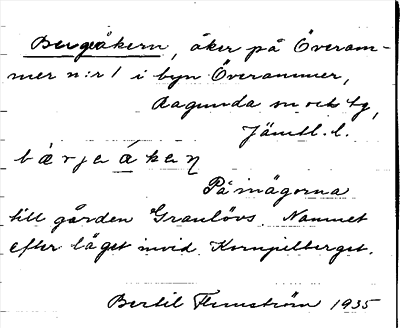 Bergåkern, åker på Överam-
mer n:r 1 i byn Överammer,
Ragunda sn och tg,
Jämtl. l.
bärjeåkeɳ
På inägorna
till gården Granlövs. Namnet
efter läget invid Kornpilberget.
Bertil Flemström 1935